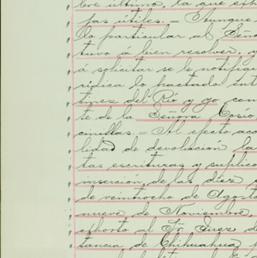 bre último, la que est
jas útiles. – Aunque
lo particular al Seño
tuvo á bien resolver, y
á solicitar se le notific
rídica lo hactado ent
tínez del Río y yo com
te de la Señora Cosío
cinillas. – Al efecto aco
lidad de devolución la
tas escrituras y suplico
inserción, de las diez
de veintiocho de Agosto
nueve de Noviembre,
exhorto al Sr. Juez de
tancia de Chihuahua p